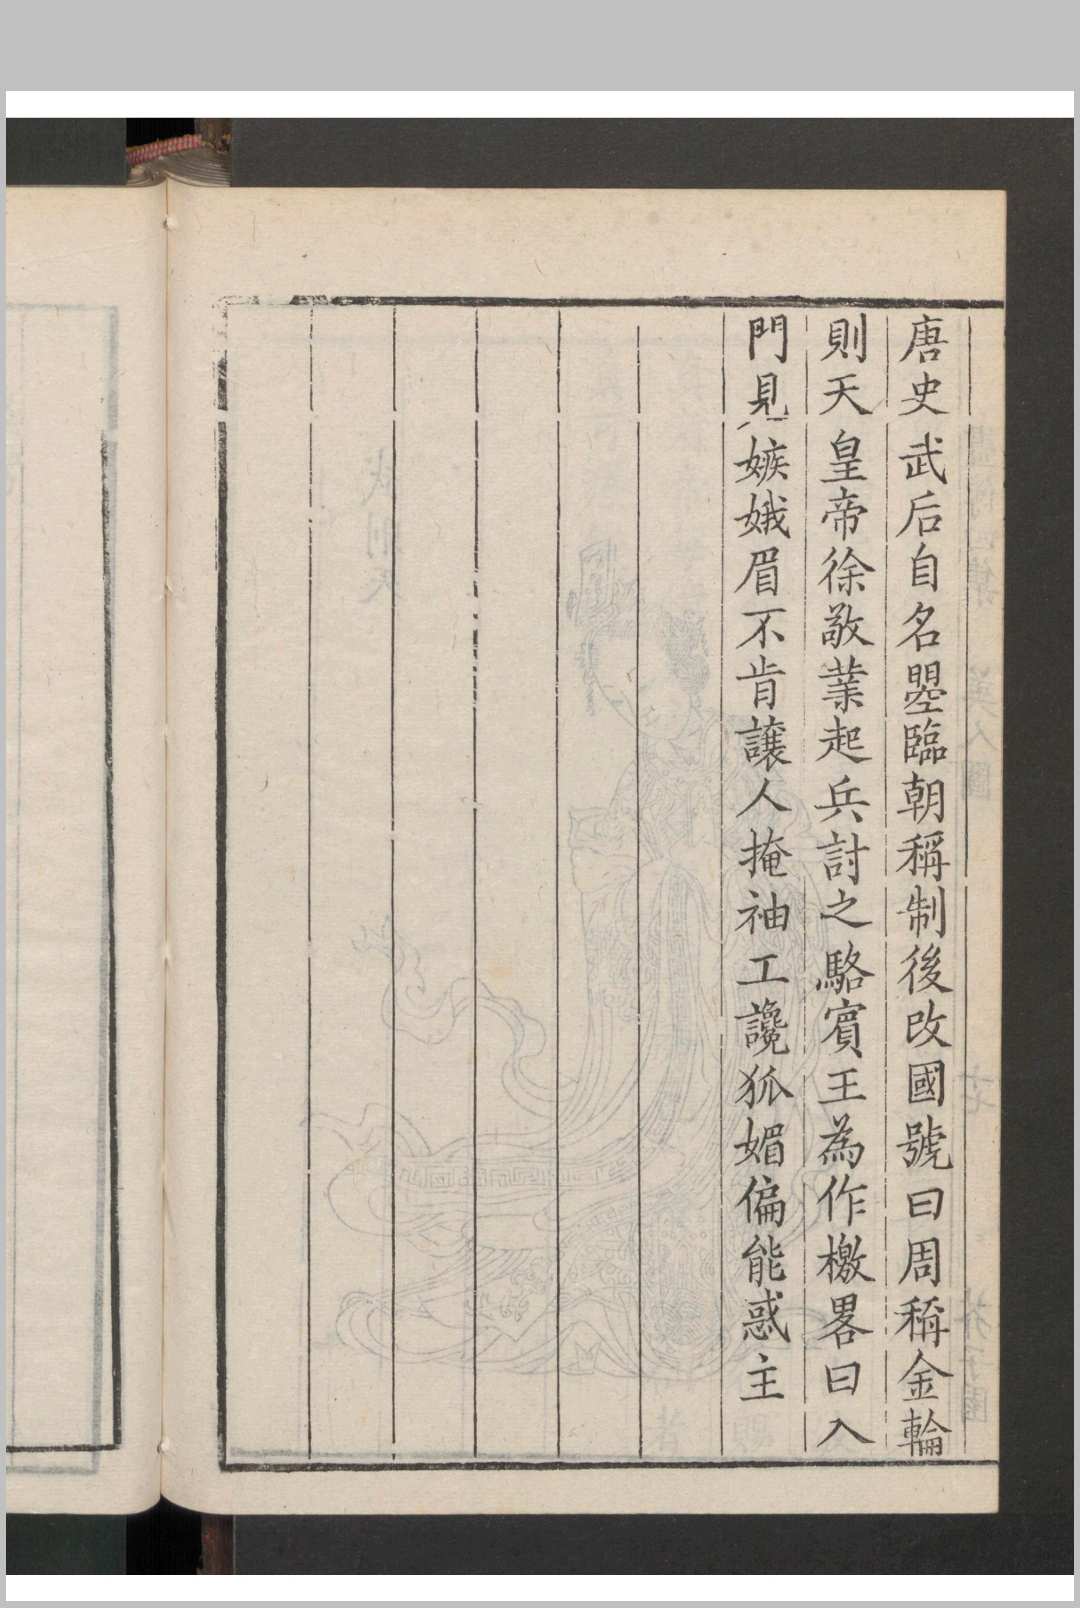 唐史武后自名曌臨朝稱制後改國號曰周稱金輪
則天皇帝徐敬業起兵討之駱賓王為作檄畧曰入
門見嫉娥眉不肯讓人掩袖工讒狐媚偏能惑主